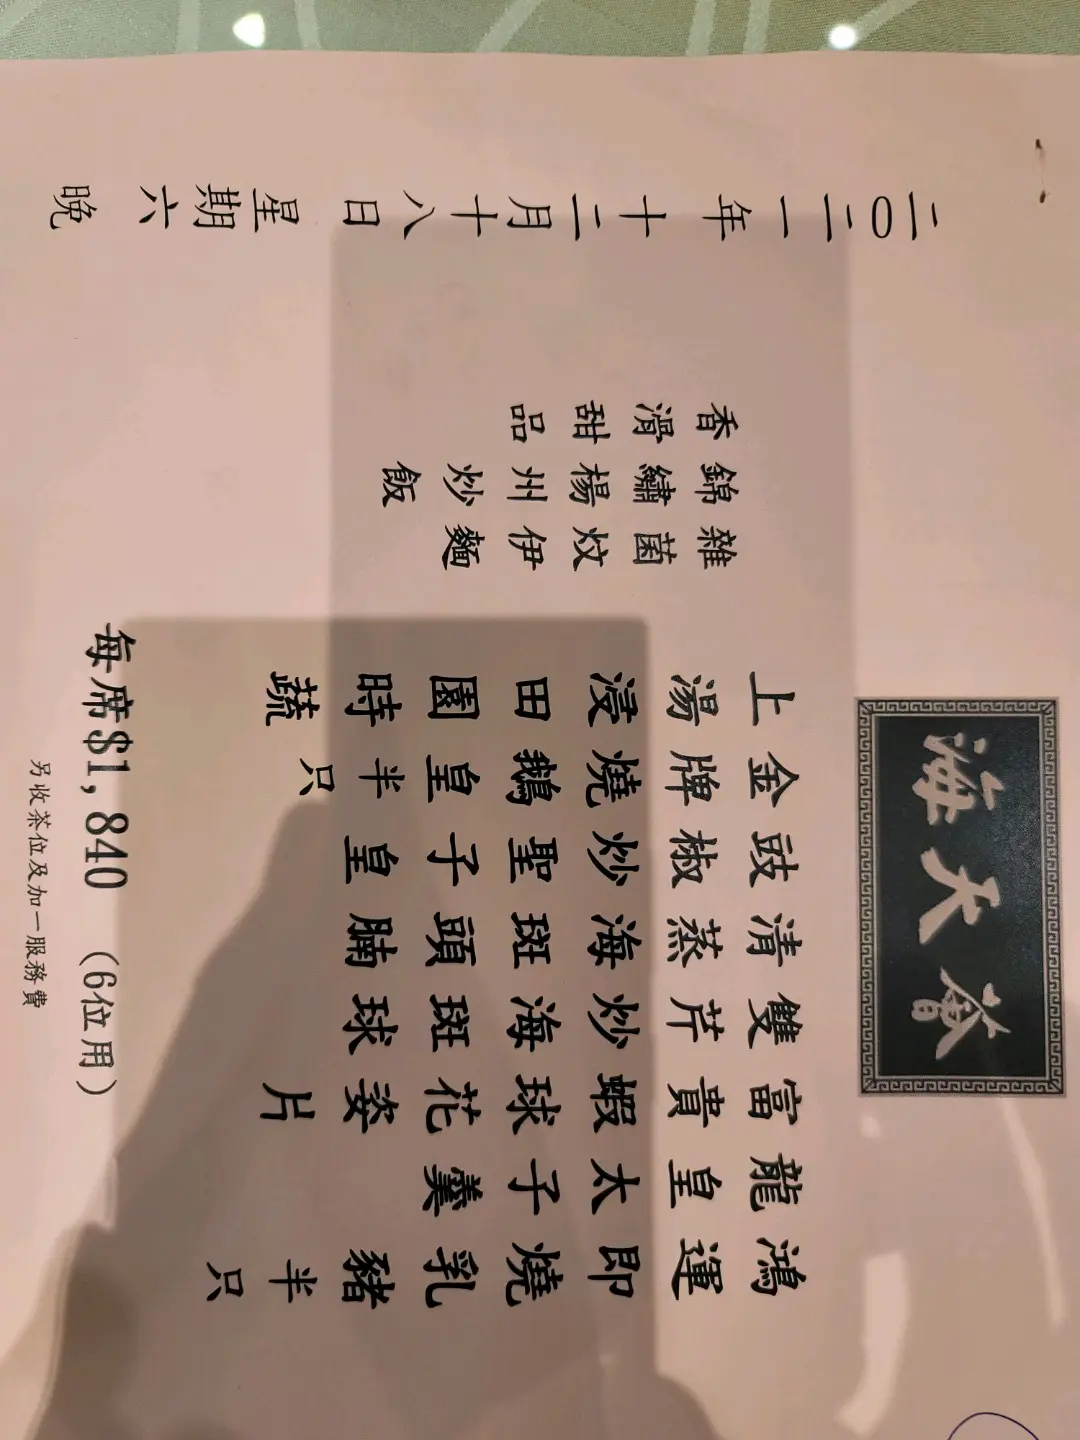 海天薈
鴻運即燒乳豬半只
龍皇太子羹
富貴蝦球花姿片
雙芹炒海斑球
清蒸海斑頭腩
豉椒炒聖子皇
金牌燒鵝皇半只
上湯浸田園時蔬
雜菌炆伊麵
錦繡楊州炒飯
香滑甜品
二〇二一年十二月十八日星期六晚
每席$1,840 (6位用)
另收茶位及加一服務費